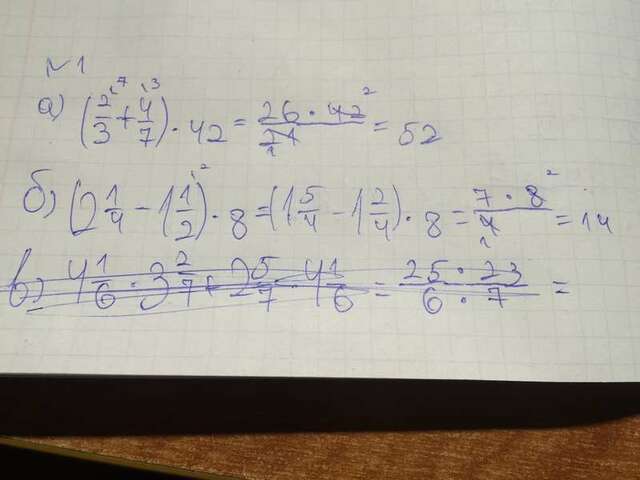 №1
а) (2/3 \7 + 4/7 \3) · 42 = 26 · 42 ²/21 ₁ = 52
б) (2 1/4 - 1 1/2 \2) · 8 = (1 5/4 - 1 2/4) · 8 = 7 · 8 ²/4 ₁ = 14
в) 4 1/6 · 3 2/7 + 2 5/7 · 4 1/6 = 25 · 23/6 · 7 =